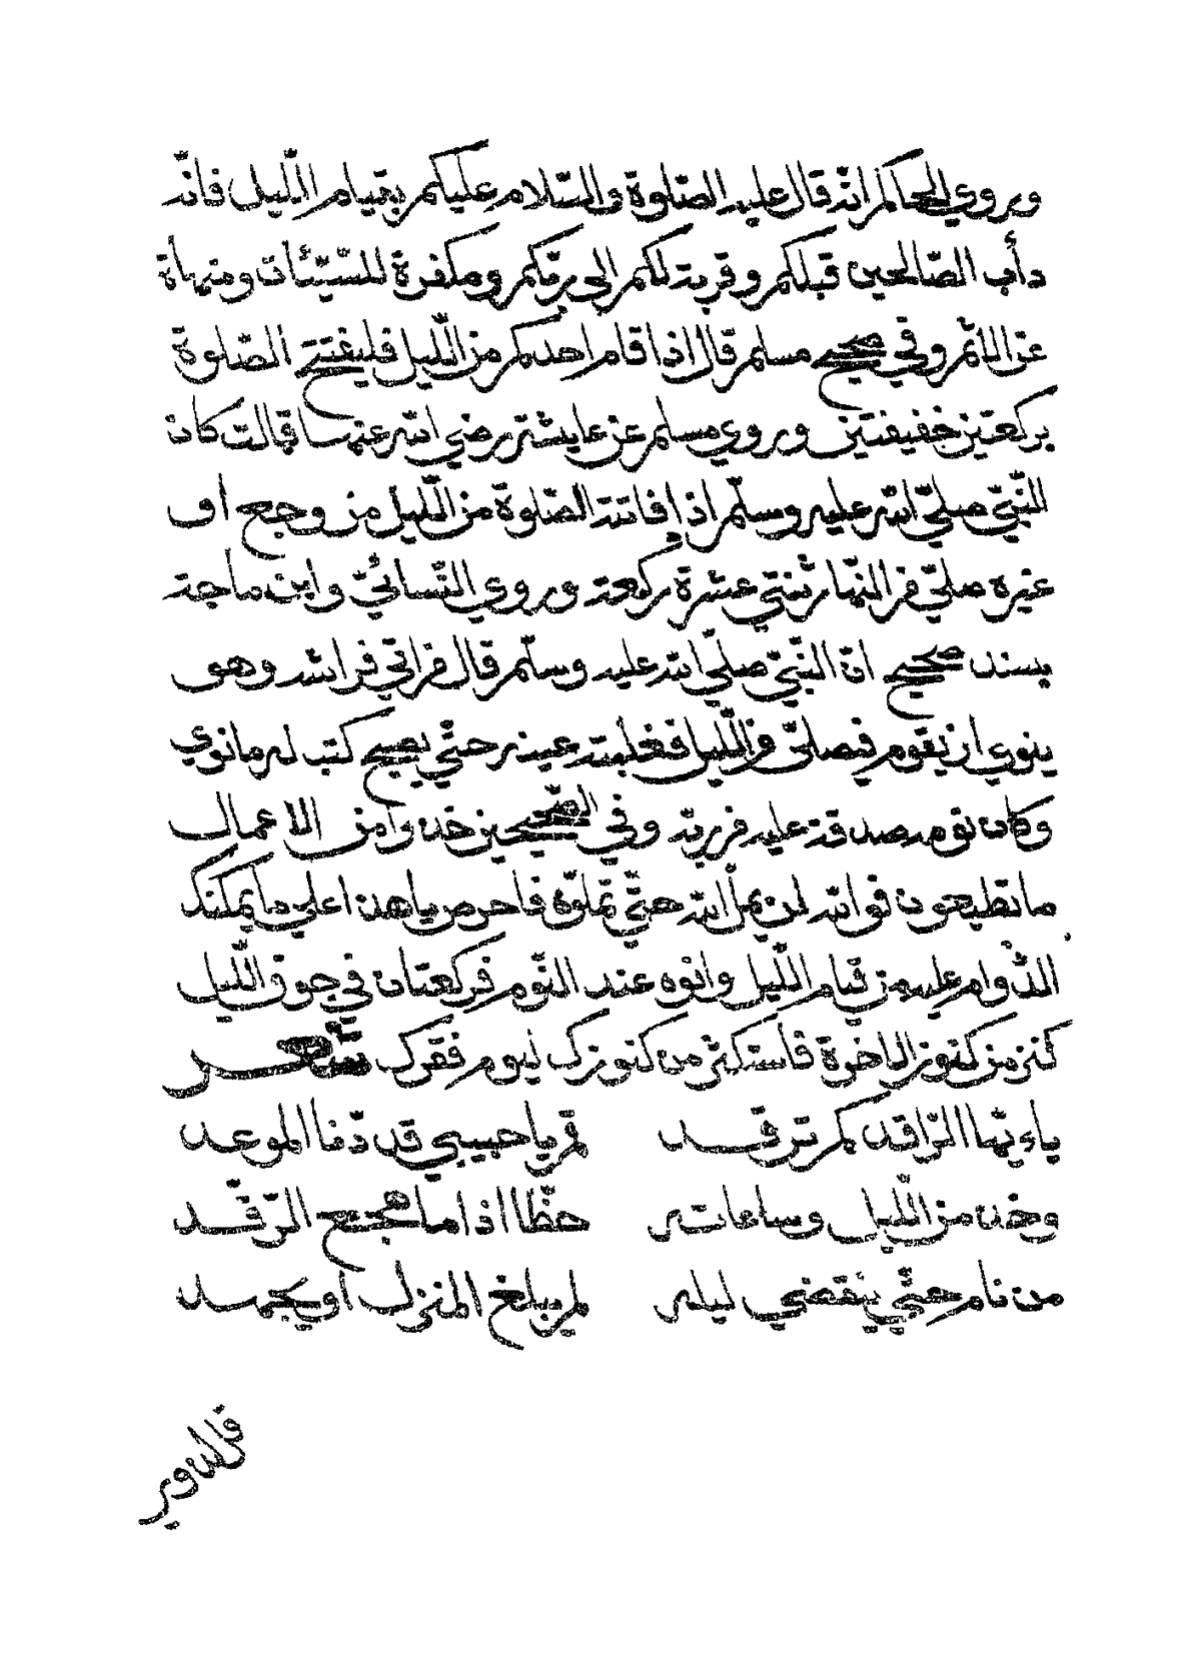 وروي الحاكم انه قال عليه الصّلوة والسّلام عليكم بقيام اللّيل فانّه
دأب الصّالحين قبلكم وقربة لكم الى ربّكم ومكفرة للسّيّئات ومنهاة
عن الاثم وفي صحيح مسلم قال اذا قام احدكم من اللّيل فليفتتح الصّلوة
بركعتين خفيفتين وروي مسلم عن عايشة رضي الله عنها قالت كان
النّبيّ صلّي الله عليه وسلّم اذا فاتته الصّلوة من اللّيل من وجع او
غيره صلّي من النّهار ثنتي عشرة ركعة وروي النّسائيّ وابن ماجة
بسند صحيح انّ النّبيّ صلّي الله عليه وسلّم قال من اتي فراشه وهو
ينوي ان يقوم فيصلّي من اللّيل فغلبته عينه حتّي يصبح كتب له ما نوي
وكان نومه صدقة عليه من ربّه وفي الصّحيحين خذوا من الاعمال
ما تطيقون فوالله لن يملّ الله حتّي تملّوا فاحرص يا هذا علي ما يمكنك
الدّوام عليه من قيام اللّيل وانوه عند النّوم فركعتان في جوف اللّيل
كنز من كنوز الاخرة فاستكثر من كنوزك ليوم فقرك شعر
ياءيّها الرّاقد كم ترقد قم يا حبيبي قد دنا الموعد
وخذ من اللّيل وساعاته حظّا اذا ما هجع الرّقّد
من نام حتّي ينقضي ليله لم يبلغ المنزل او يجهد